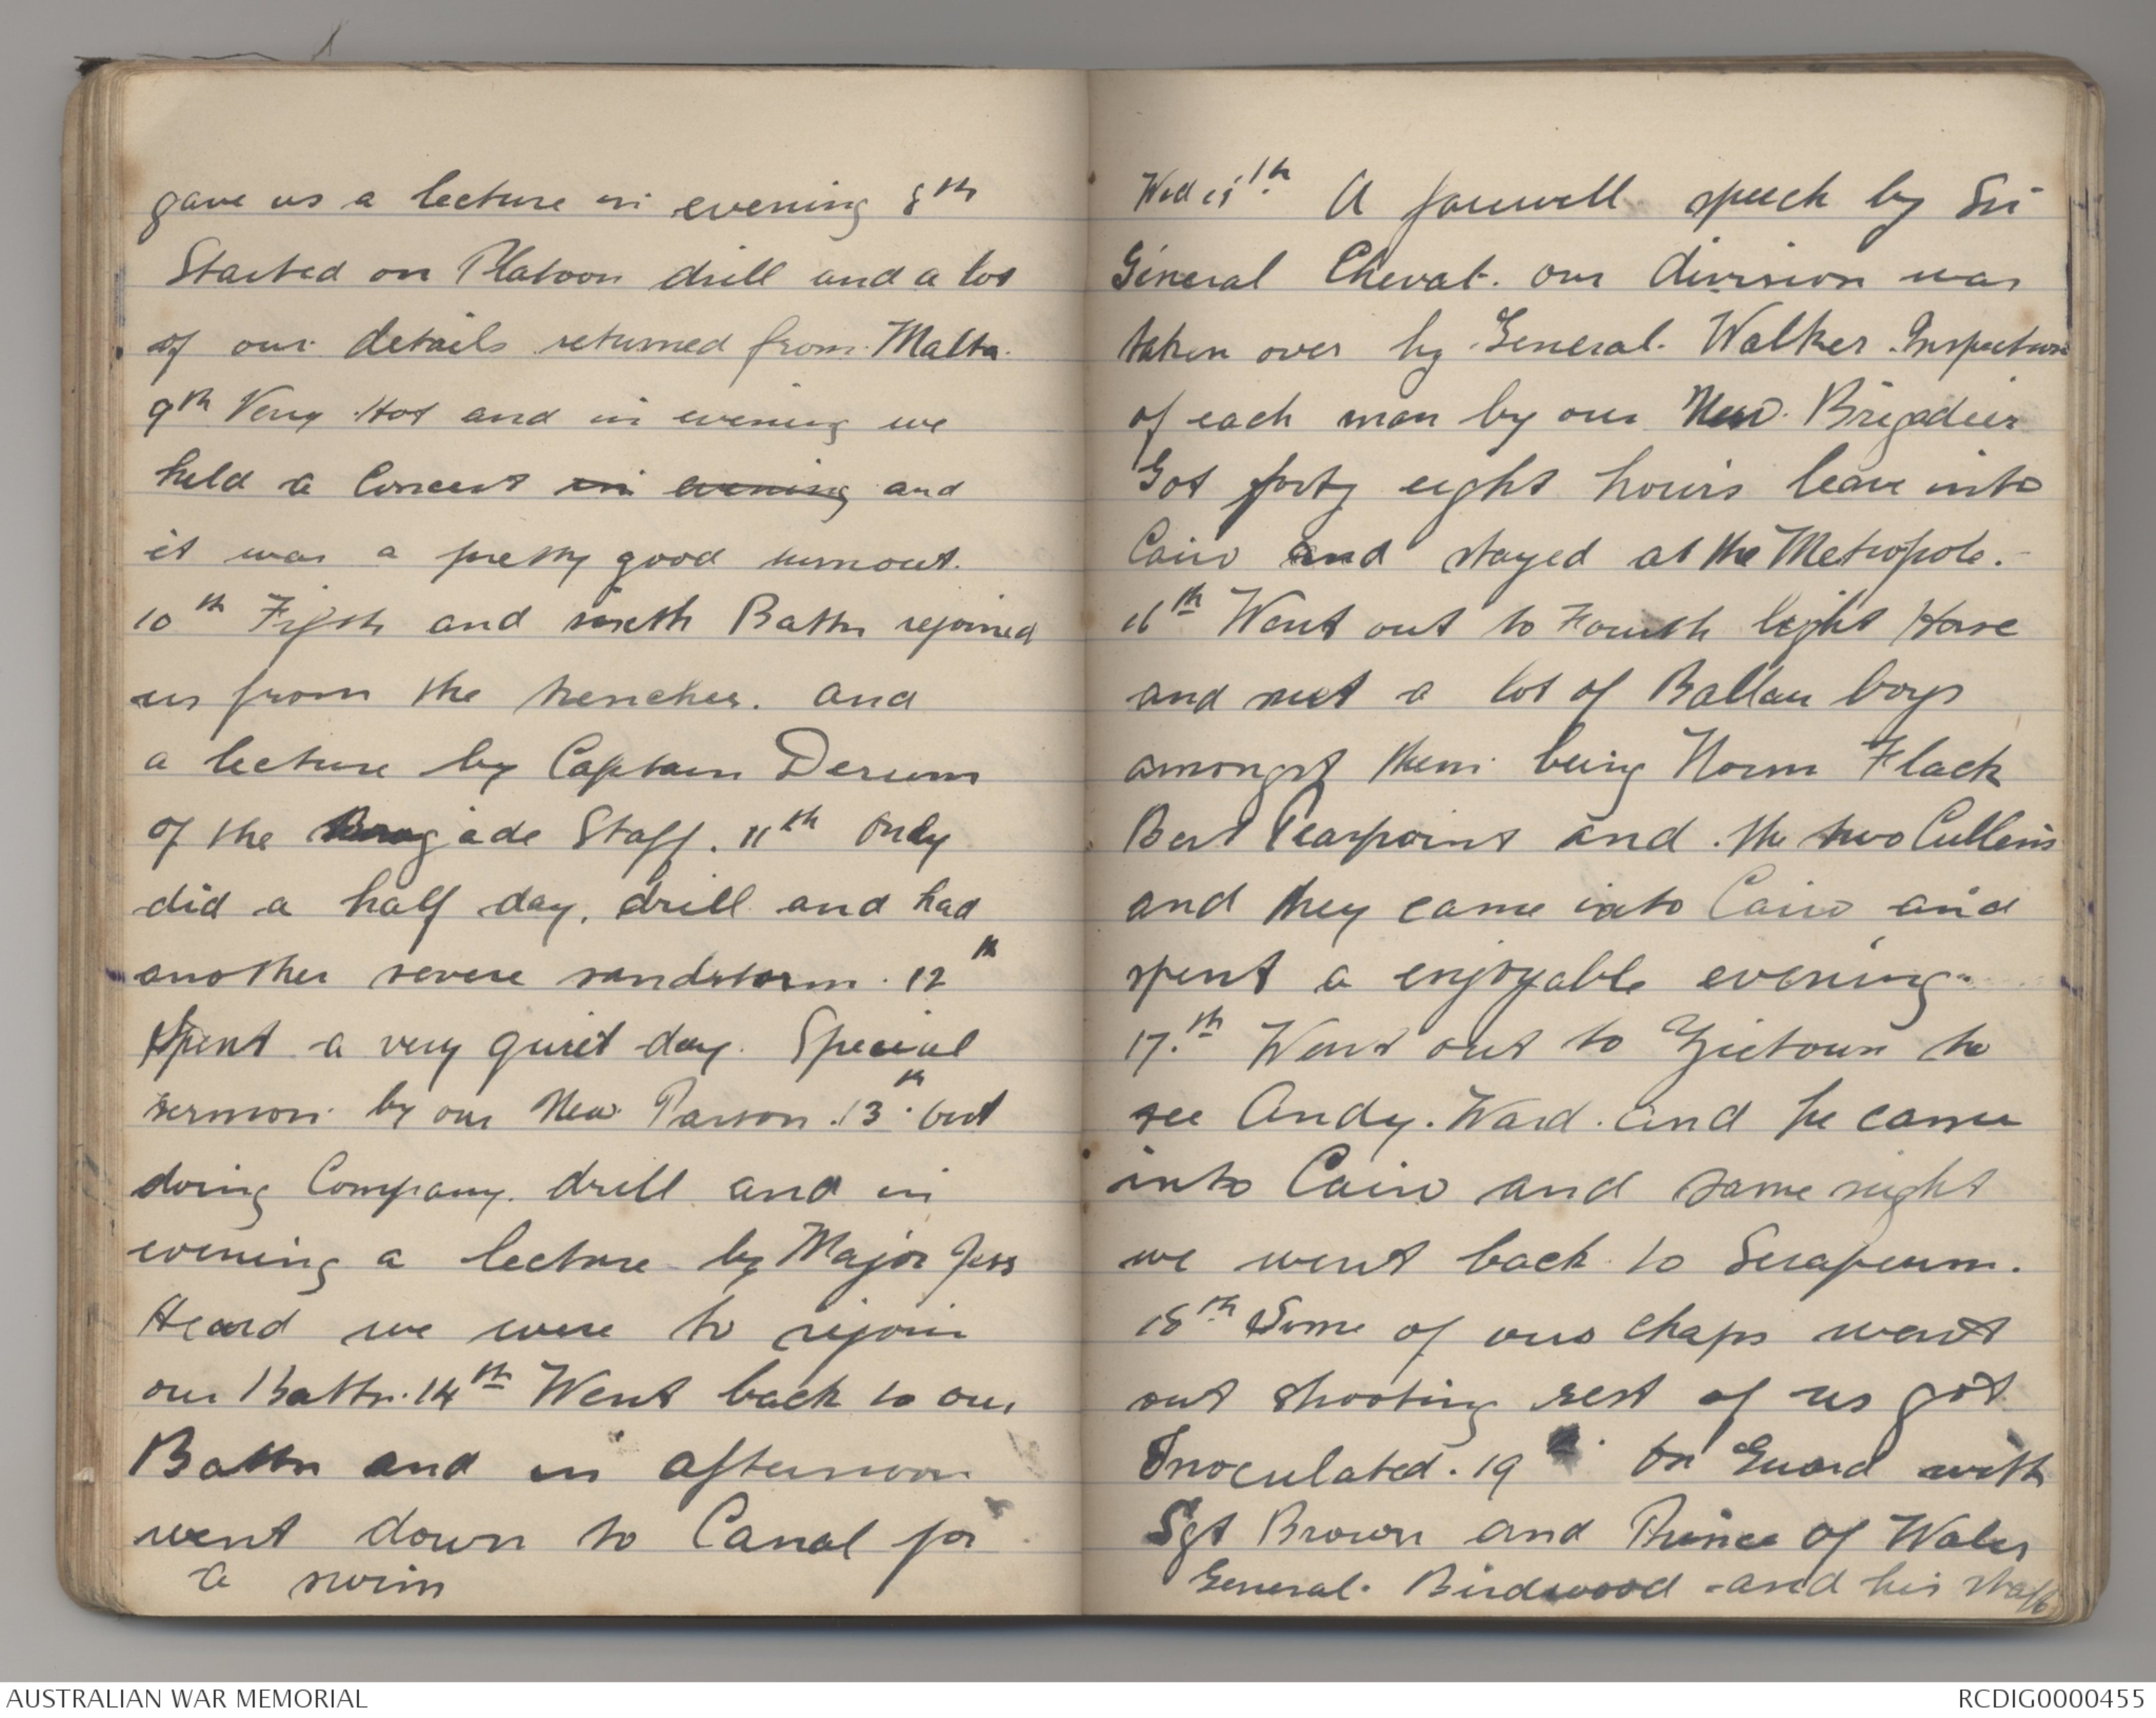 gave us a lecture in evening 8th
Started on Platoon drill and a lot
of our details returned from Malta.
9th Very Hot and in evening we
held a Concert in evening and
it was a pretty good turnout.
10th Fifth and sixth Battn rejoined
us from the trenches. and
a lecture by Captain Derum
of the Brigade Staff. 11th Only
did a half day, drill and had
another severe sandstorm. 12th
Spent a very quiet day. Special
sermon by our New Parson. 13th Out
doing Company drill and in
evening a lecture by Major Jess
Heard we were to rejoin
our Battn. 14th Went back to our
Battn and in afternoon
went down to Canal for
a swim
Wed 15th A farewell speech by Sir
General Chevat. our division was
taken over by General. Walker. Inspection
of each man by our New Brigadier
Got forty eight hours leave into
Cairo and stayed at the Metropole.
16th Went out to Fourth light Horse
and met a lot of Ballan boys
amongst them being Norm Flack
Bert Pearpoint and the two Cullens
and they came into Cairo and
spent a enjoyable evening
17th Went out to Zietoun to
see Andy. Ward. and he came
into Cairo and same night
we went back to Serapeum.
18th Some of our chaps went
out shooting rest of us got
Inoculated. 19 On Guard with
Sgt Brown and Prince of Wales
General. Birdwood and his staff
AUSTRALIAN WAR MEMORIAL
RCDIG0000455